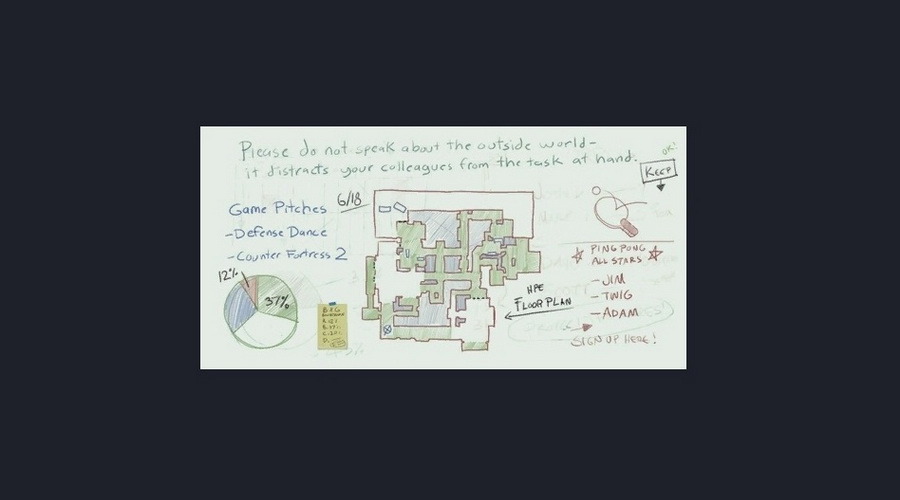 Please do not speak about the outside world-
it distracts your colleagues from the task at hand.
OK!
KEEP
6/18
Game Pitches
-Defense Dance
-Counter Fortress 2
12%
37%
HPE
FLOORPLAN
PING PONG
ALL STARS
-JIM
-TWIG
-ADAM
SIGN UP HERE!